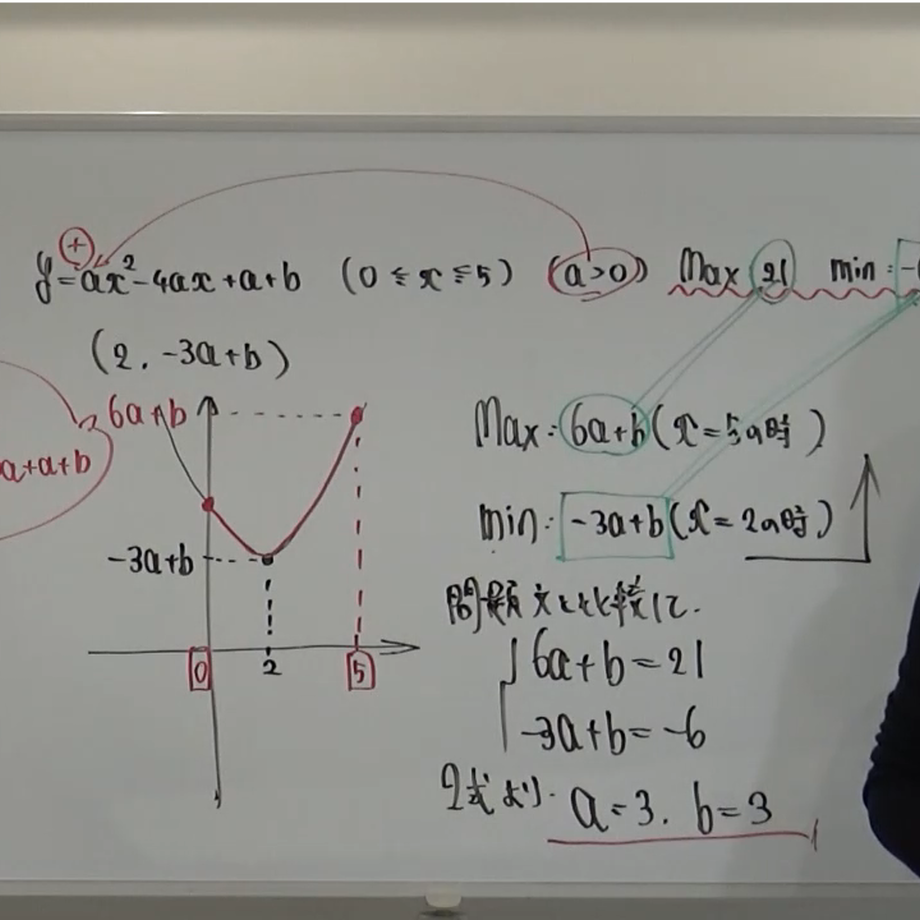 ⊕
y=ax²-4ax+a+b (0≦x≦5) (a>0) Max 21 min:-
(2, -3a+b)
6a+b
a+a+b
-3a+b
0 2 5
Max:6a+b(x=5の時)
min:-3a+b(x=2の時)
問題文と比較して.
6a+b=21
-3a+b=-6
2式より. a=3. b=3